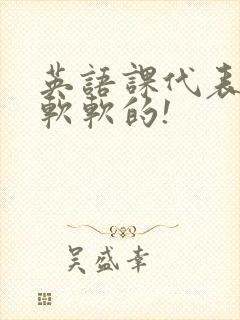 英語課代表
軟軟的!
吳盛幸